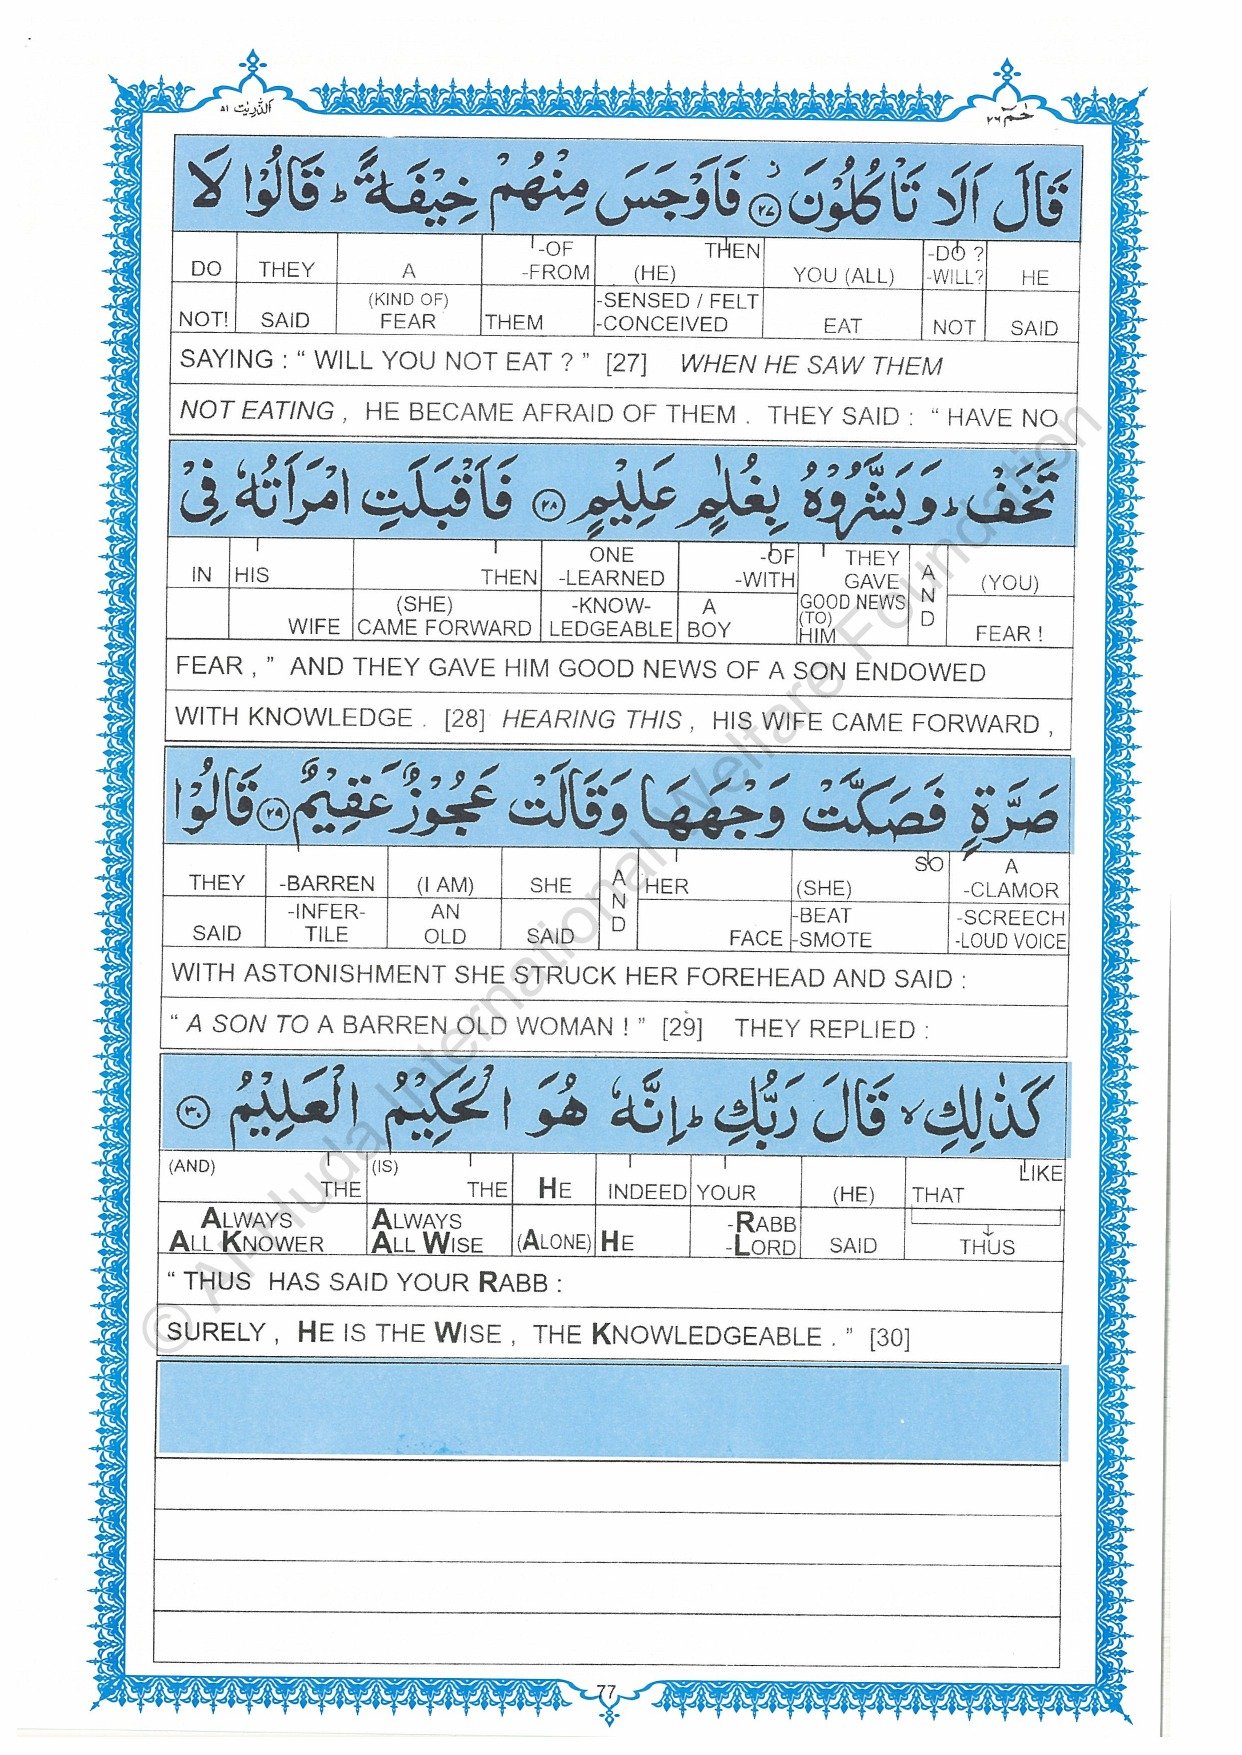 الذّٰریٰت ۵۱
حٰمٓ ۲۶
قَالَ اَلَا تَاْكُلُوْنَ ۟ ﴿۲۷﴾ فَاَوْجَسَ مِنْهُمْ خِیْفَةً ؕ قَالُوْا لَا
DO THEY A -OF THEN -DO ?
-FROM (HE) YOU (ALL) -WILL? HE
NOT! SAID (KIND OF) FEAR THEM -SENSED / FELT -CONCEIVED EAT NOT SAID
SAYING : “ WILL YOU NOT EAT ? ” [27] WHEN HE SAW THEM
NOT EATING , HE BECAME AFRAID OF THEM . THEY SAID : “ HAVE NO
تَخَفْ ؕ وَ بَشَّرُوْهُ بِغُلٰمٍ عَلِیْمٍ ﴿۲۸﴾ فَاَقْبَلَتِ امْرَاَتُهٗ فِیْ
IN HIS THEN ONE -LEARNED -OF -WITH THEY GAVE AND (YOU)
WIFE (SHE) CAME FORWARD -KNOW- LEDGEABLE A BOY GOOD NEWS (TO) HIM FEAR !
FEAR , ” AND THEY GAVE HIM GOOD NEWS OF A SON ENDOWED
WITH KNOWLEDGE . [28] HEARING THIS , HIS WIFE CAME FORWARD ,
صَرَّةٍ فَصَكَّتْ وَجْهَهَا وَ قَالَتْ عَجُوْزٌ عَقِیْمٌ ﴿۲۹﴾ قَالُوْا
THEY -BARREN (I AM) SHE AND HER (SHE) SO A -CLAMOR
SAID -INFER- TILE AN OLD SAID FACE -BEAT -SMOTE -SCREECH -LOUD VOICE
WITH ASTONISHMENT SHE STRUCK HER FOREHEAD AND SAID :
“ A SON TO A BARREN OLD WOMAN ! ” [29] THEY REPLIED :
كَذٰلِكِ ۙ قَالَ رَبُّكِ ؕ اِنَّهٗ هُوَ الْحَكِیْمُ الْعَلِیْمُ ﴿۳۰﴾
(AND) THE (IS) THE HE INDEED YOUR (HE) THAT LIKE
ALWAYS ALL KNOWER ALWAYS ALL WISE (ALONE) HE -RABB -LORD SAID THUS
“ THUS HAS SAID YOUR RABB :
SURELY , HE IS THE WISE , THE KNOWLEDGEABLE . ” [30]
77
© Al-Huda International Welfare Foundation